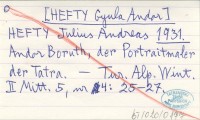 [HEFTY Gyula Andor]
HEFTY Julius Andreas 1931.
Andor Boruth, der Portraitmaler
der Tatra. — Tur. Alp. Wint.
II Mitt. 5, nr 4: 25-27,